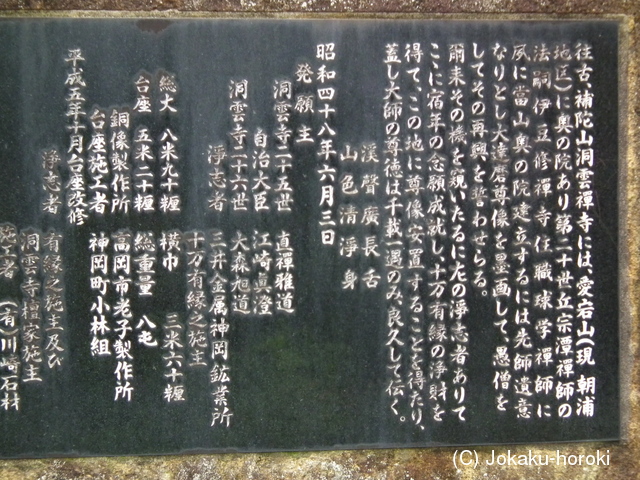 往古補陀山洞雲禅寺には、愛宕山(現 朝浦
地区)に奥の院あり第二十世丘宗潭禅師の
法嗣伊豆修禅寺住職球学禅師に
夙に當山奥の院建立するは先師遺意
なりとし大達磨尊像を墨画して愚僧を
してその再興を誓わせらる。
爾来その機を窺いたるに左の淨志者ありて
こに宿年の念願成就し、十万有縁の淨財を
得て、この地に尊像安置することを得たり、
蓋し大師の尊徳は千載一遇のみ、良久して伝く。
渓聲廣長舌
山色清淨身
昭和四十八年六月三日
発願主
洞雲寺二十五世 直禪雅道
自治大臣 江崎真澄
洞雲寺二十六世 大森旭道
淨志者 三井金属神岡鉱業所
十万有縁之施主
総丈 八米九十糎 横巾 三米六十糎
台座 五米二十糎 総重量 八屯
銅像製作所 高岡市老子製作所
台座施工者 神岡町小林組
平成五年十月台座改修
淨志者 有縁之施主及び
洞雲寺檀家施主
施工者 (有)川崎石材
(C) Jokaku-horoki